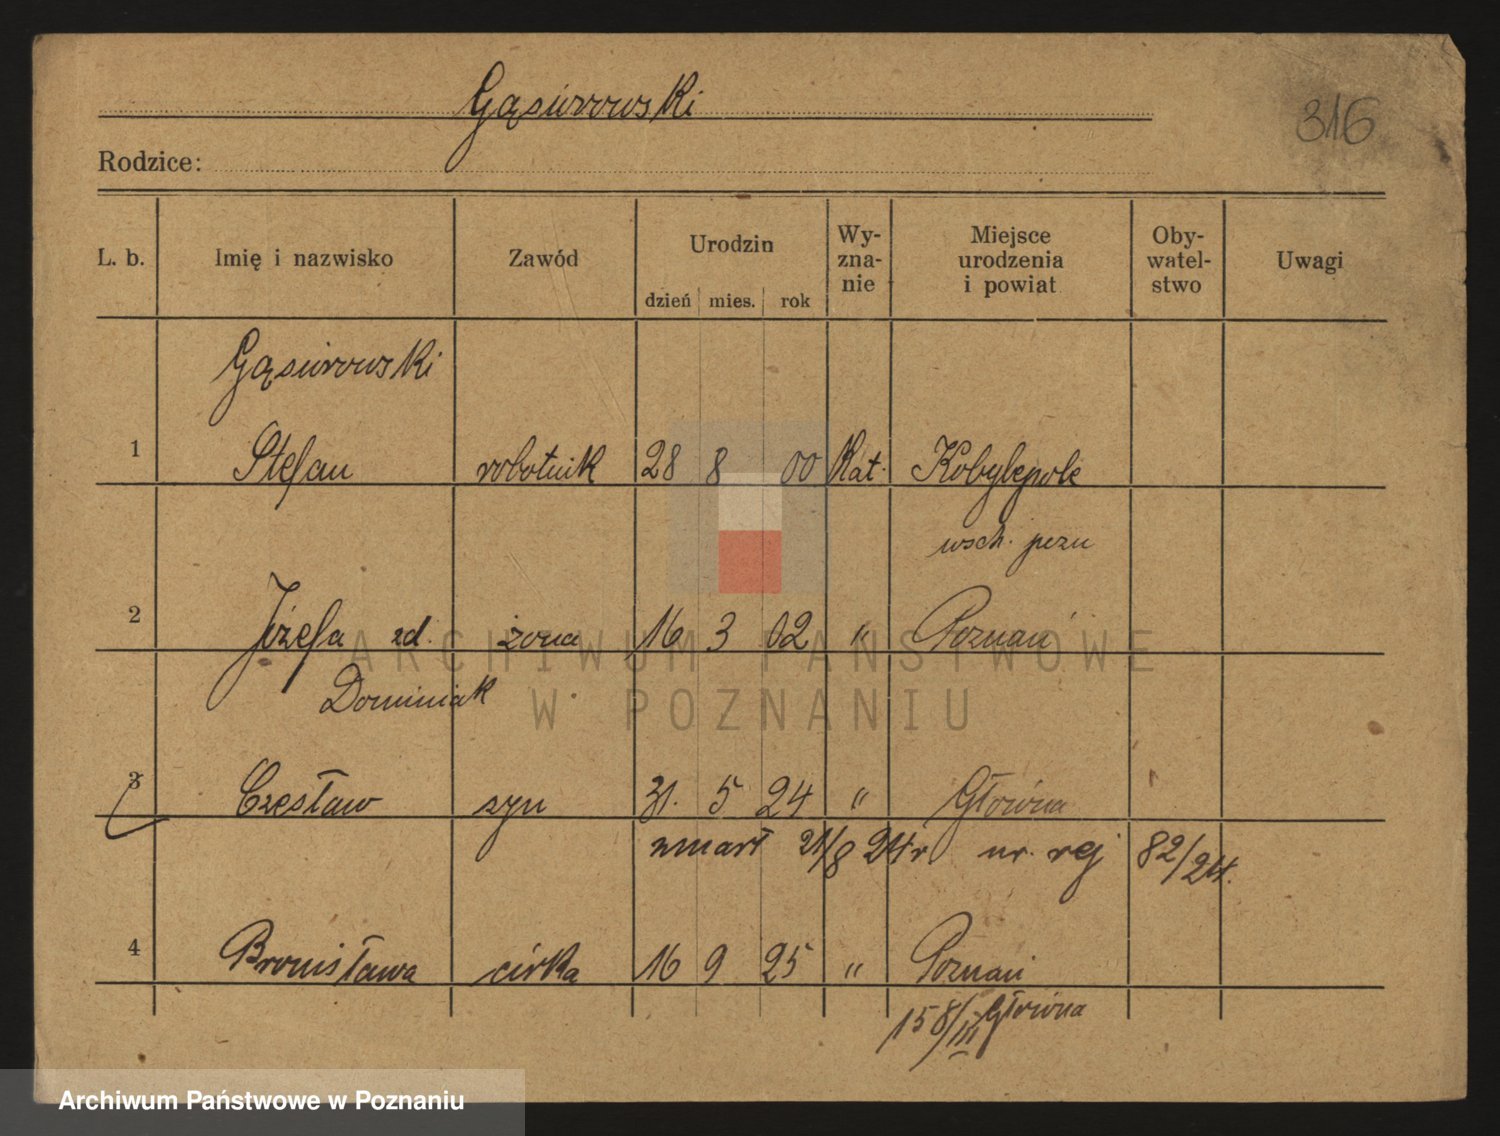 Gąsiorowski
316
Rodzice:
L. b. Imię i nazwisko Zawód Urodzin dzień mies. rok Wy-zna-nie Miejsce urodzenia i powiat Oby-watel-stwo Uwagi
Gąsiorowski
1 Stefan robotnik 28 8 00 Kat. Kobylepole
wsch. pozn
2 Józefa zd. żona 16 3 02 " Poznań
Dominiak
3 Czesław syn 31. 5 24 " Główna
zmarł 21/8 24 r nr. rej 82/24.
4 Bronisława córka 16 9 25 " Poznań
158/III Główna
ARCHIWUM PAŃSTWOWE
W POZNANIU
Archiwum Państwowe w Poznaniu